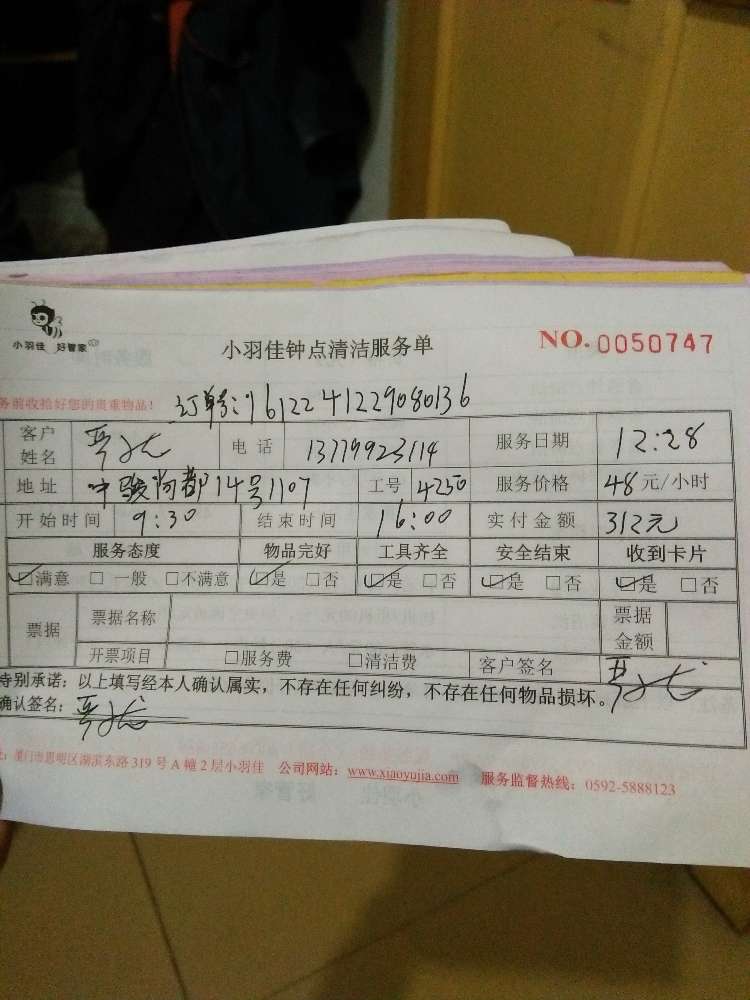 小羽佳 好管家
小羽佳钟点清洁服务单
NO. 0050747
务前收拾好您的贵重物品！ 订单号:1612241229080136
客户姓名 电话 13779923114 服务日期 12:28
地址 中骏尚都14号1107 工号 4250 服务价格 48元/小时
开始时间 9:30 结束时间 16:00 实付金额 312元
服务态度 物品完好 工具齐全 安全结束 收到卡片
☑满意 □一般 □不满意 ☑是 □否 ☑是 □否 ☑是 □否 ☑是 □否
票据 票据名称 票据金额
开票项目 □服务费 □清洁费 客户签名
特别承诺：以上填写经本人确认属实，不存在任何纠纷，不存在任何物品损坏。
确认签名：
厦门市思明区湖滨东路319号A幢2层小羽佳 公司网站：www.xiaoyujia.com 服务监督热线：0592-5888123